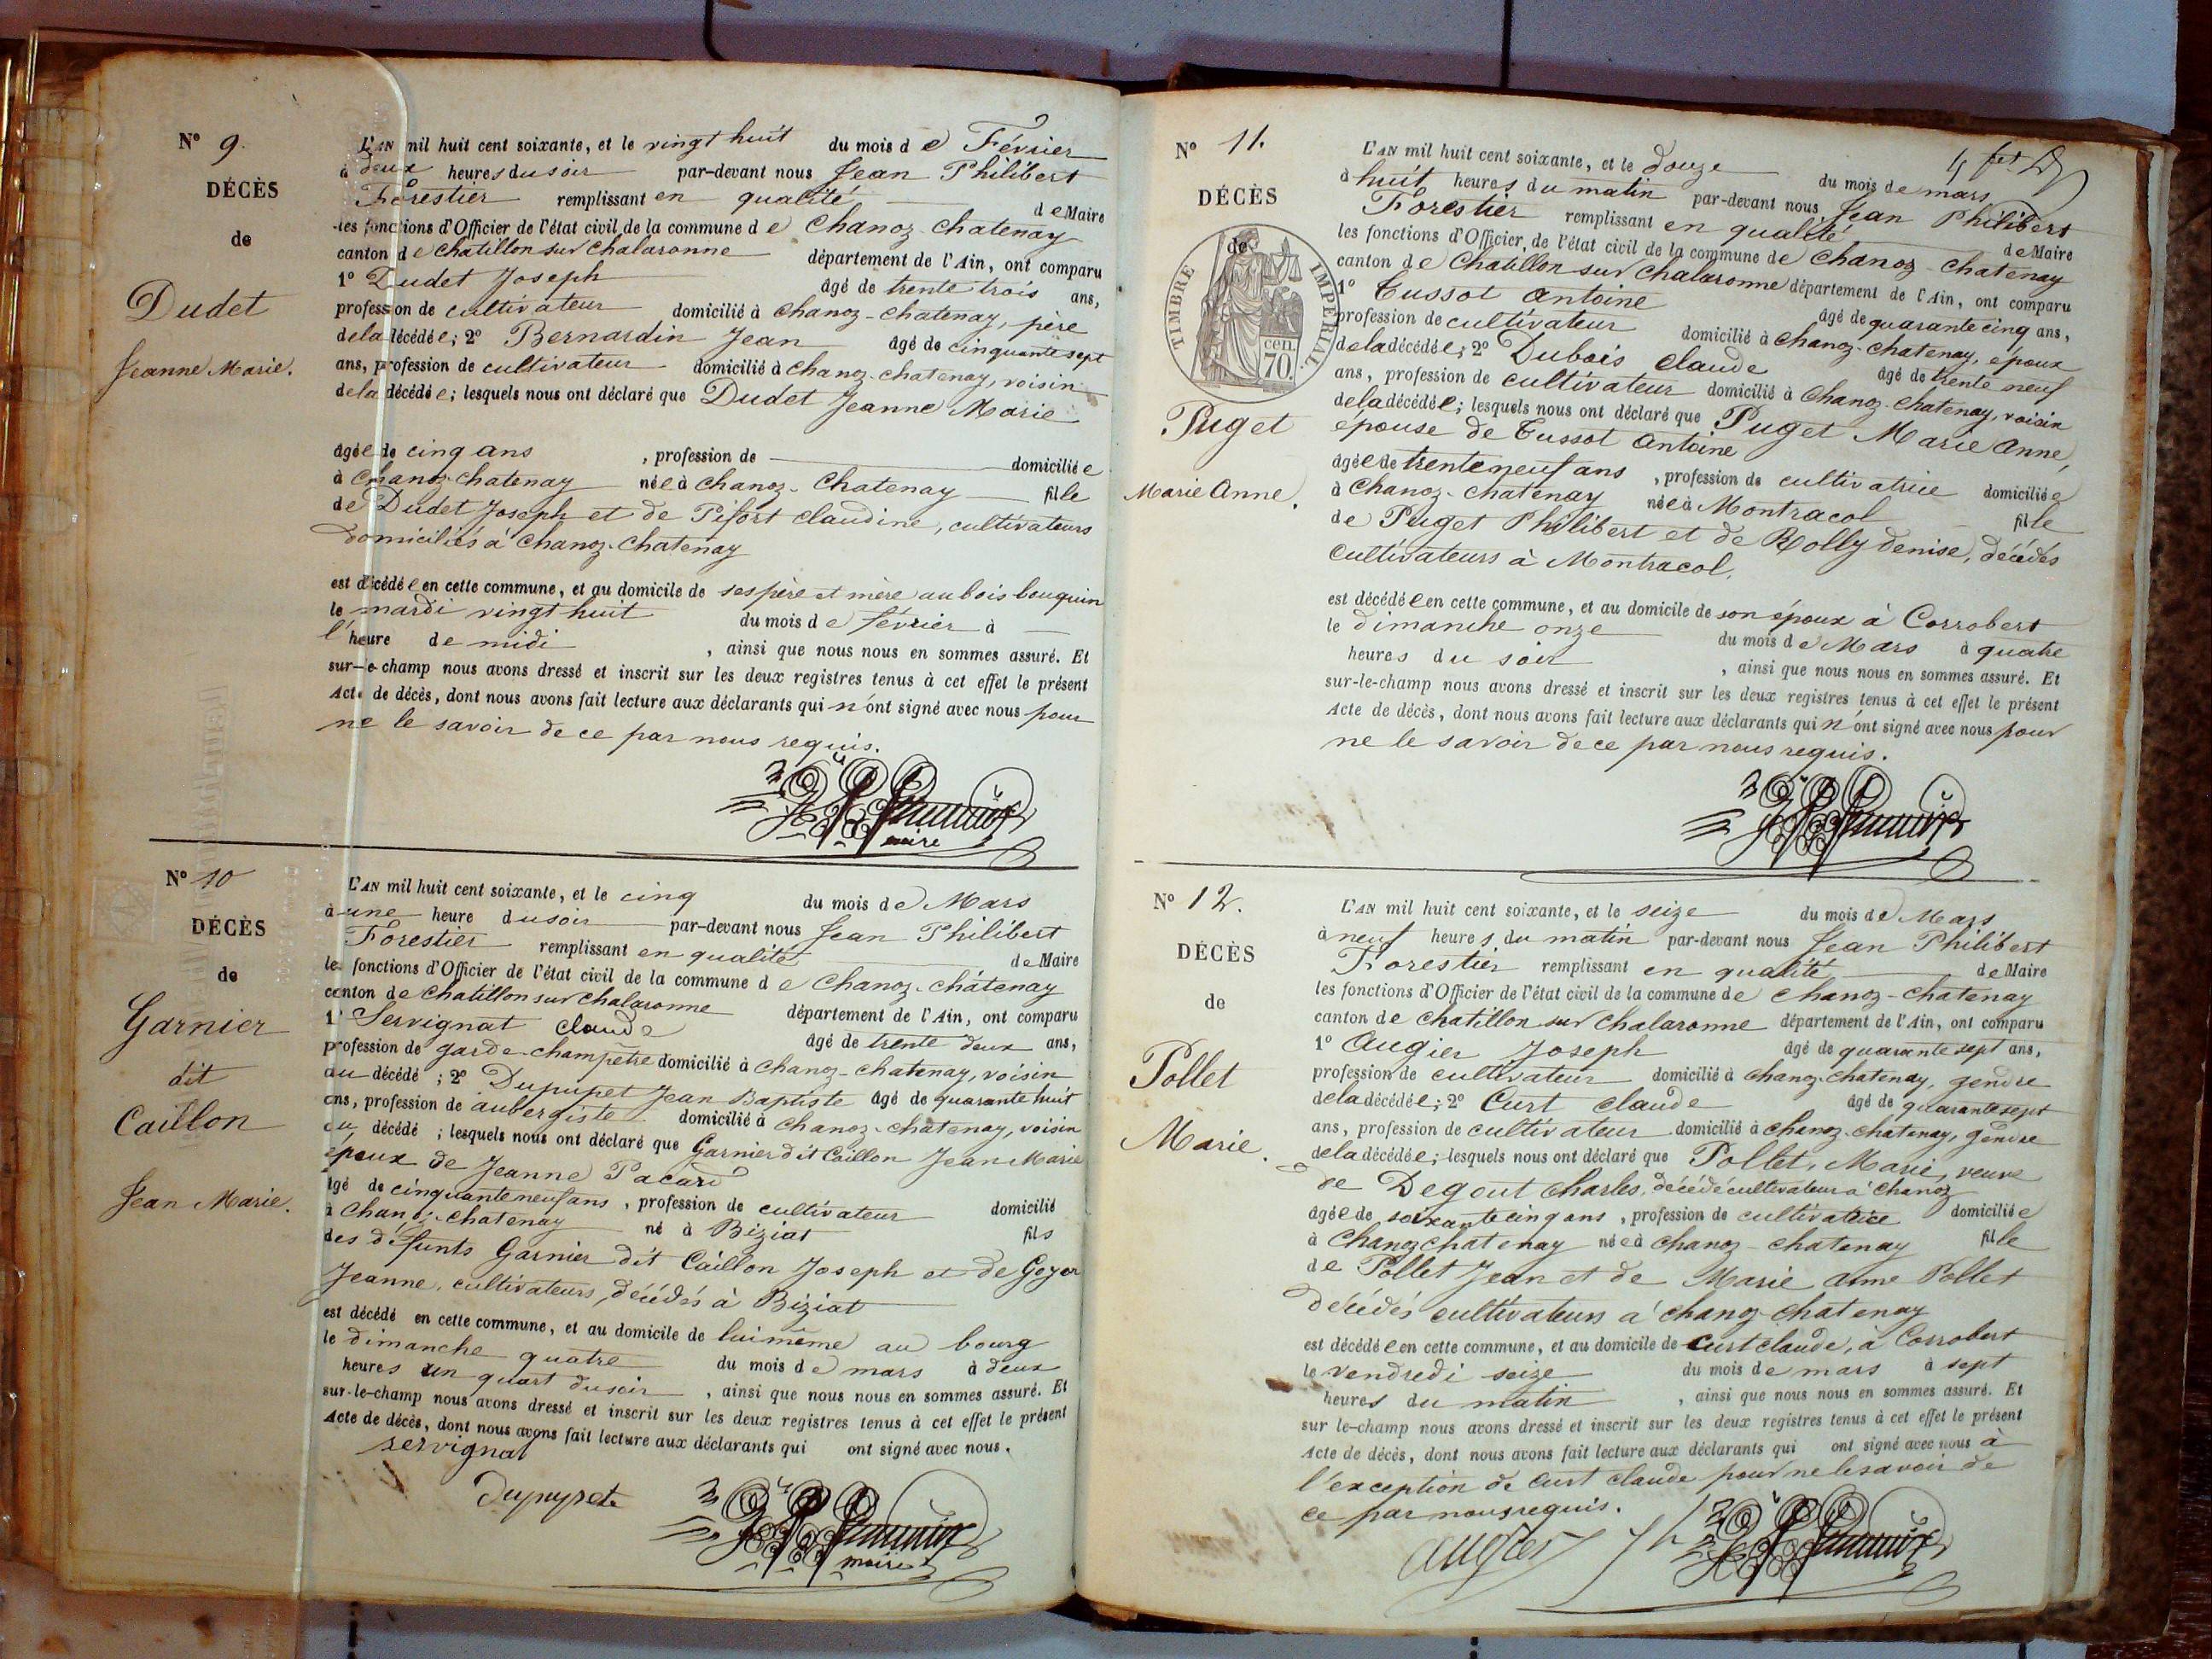 N° 9.
DÉCÈS
de
Dudet
Jeanne Marie.
L'AN mil huit cent soixante, et le vingt huit du mois de Février
à deux heures du soir par-devant nous Jean Philibert
Forestier remplissant en qualité de Maire
les fonctions d'Officier de l'état civil de la commune de Chanoz-Chatenay
canton de Chatillon sur Chalaronne département de l'Ain, ont comparu
1° Dudet Joseph âgé de trente trois ans,
profession de cultivateur domicilié à Chanoz-Chatenay, père
de la décédée; 2° Bernardin Jean âgé de cinquante sept
ans, profession de cultivateur domicilié à Chanoz-Chatenay, voisin
de la décédée; lesquels nous ont déclaré que Dudet Jeanne Marie
âgée de cinq ans , profession de domiciliée
à Chanoz-Chatenay née à Chanoz-Chatenay fille
de Dudet Joseph et de Pifort Claudine, cultivateurs
domiciliés à Chanoz-Chatenay
est décédée en cette commune, et au domicile de ses père et mère au bois bouquin
le mardi vingt huit du mois de février à
l'heure de midi , ainsi que nous nous en sommes assuré. Et
sur-le-champ nous avons dressé et inscrit sur les deux registres tenus à cet effet le présent
Acte de décès, dont nous avons fait lecture aux déclarants qui n'ont signé avec nous pour
ne le savoir de ce par nous requis.
maire
N° 10
DÉCÈS
de
Garnier
dit
Caillon
Jean Marie.
L'AN mil huit cent soixante, et le cinq du mois de Mars
à une heure du soir par-devant nous Jean Philibert
Forestier remplissant en qualité de Maire
les fonctions d'Officier de l'état civil de la commune de Chanoz-châtenay
canton de Chatillon sur Chalaronne département de l'Ain, ont comparu
1° Servignat Claude âgé de trente deux ans,
profession de garde-champêtre domicilié à Chanoz-Chatenay, voisin
au décédé ; 2° Dupupet Jean Baptiste âgé de quarante huit
ans, profession de aubergiste domicilié à Chanoz-chatenay, voisin
du décédé ; lesquels nous ont déclaré que Garnier dit Caillon Jean Marie
époux de Jeanne Pacard
âgé de cinquante neuf ans , profession de cultivateur domicilié
à Chanoz-Chatenay né à Biziat fils
des défunts Garnier dit Caillon Joseph et de Goyer
Jeanne, cultivateurs, décédés à Biziat
est décédé en cette commune, et au domicile de lui même au bourg
le dimanche quatre du mois de mars à deux
heures un quart du soir , ainsi que nous nous en sommes assuré. Et
sur-le-champ nous avons dressé et inscrit sur les deux registres tenus à cet effet le présent
Acte de décès, dont nous avons fait lecture aux déclarants qui ont signé avec nous.
servignat
maire
N° 11.
DÉCÈS
de
TIMBRE IMPERIAL
cen.
70.
Puget
Marie Anne.
L'AN mil huit cent soixante, et le douze du mois de mars
à huit heures du matin par-devant nous Jean Philibert
Forestier remplissant en qualité de Maire
les fonctions d'Officier, de l'état civil de la commune de Chanoz-Chatenay
canton de Chatillon sur Chalaronne département de l'Ain, ont comparu
1° Cussot Antoine âgé de quarante cinq ans,
profession de cultivateur domicilié à Chanoz-Chatenay, époux
de la décédée; 2° Dubois Claude âgé de trente neuf
ans, profession de cultivateur domicilié à Chanoz-Chatenay, voisin
de la décédée; lesquels nous ont déclaré que Puget Marie Anne,
épouse de Cussot Antoine
âgée de trente neuf ans , profession de cultivatrice domiciliée
à Chanoz-Chatenay née à Montracol fille
de Puget Philibert et de Rolly denise, décédés
cultivateurs à Montracol.
est décédée en cette commune, et au domicile de son époux à Corrobert
le dimanche onze du mois de Mars à quatre
heures du soir , ainsi que nous nous en sommes assuré. Et
sur-le-champ nous avons dressé et inscrit sur les deux registres tenus à cet effet le présent
Acte de décès, dont nous avons fait lecture aux déclarants qui n'ont signé avec nous pour
ne le savoir de ce par nous requis.
N° 12.
DÉCÈS
de
Pollet
Marie.
L'AN mil huit cent soixante, et le seize du mois de Mars
à neuf heures du matin par-devant nous Jean Philibert
Forestier remplissant en qualité de Maire
les fonctions d'Officier de l'état civil de la commune de Chanoz-Chatenay
canton de Chatillon sur Chalaronne département de l'Ain, ont comparu
1° Augier Joseph âgé de quarante sept ans,
profession de cultivateur domicilié à Chanoz-Chatenay, gendre
de la décédée; 2° Curt Claude âgé de quarante sept
ans, profession de cultivateur domicilié à Chanoz-Chatenay, gendre
de la décédée; lesquels nous ont déclaré que Pollet, Marie, veuve
de Degout Charles, décédé cultivateur à Chanoz
âgée de soixante cinq ans , profession de cultivatrice domiciliée
à Chanoz chatenay née à Chanoz-chatenay fille
de Pollet Jean et de Marie Anne Pollet
décédés cultivateurs à chanoz chatenay
est décédée en cette commune, et au domicile de Curt Claude, à Corrobert
le vendredi seize du mois de mars à sept
heures du matin , ainsi que nous nous en sommes assuré. Et
sur le-champ nous avons dressé et inscrit sur les deux registres tenus à cet effet le présent
Acte de décès, dont nous avons fait lecture aux déclarants qui ont signé avec nous à
l'exception de Curt Claude pour ne le savoir de
ce par nous requis.
augier